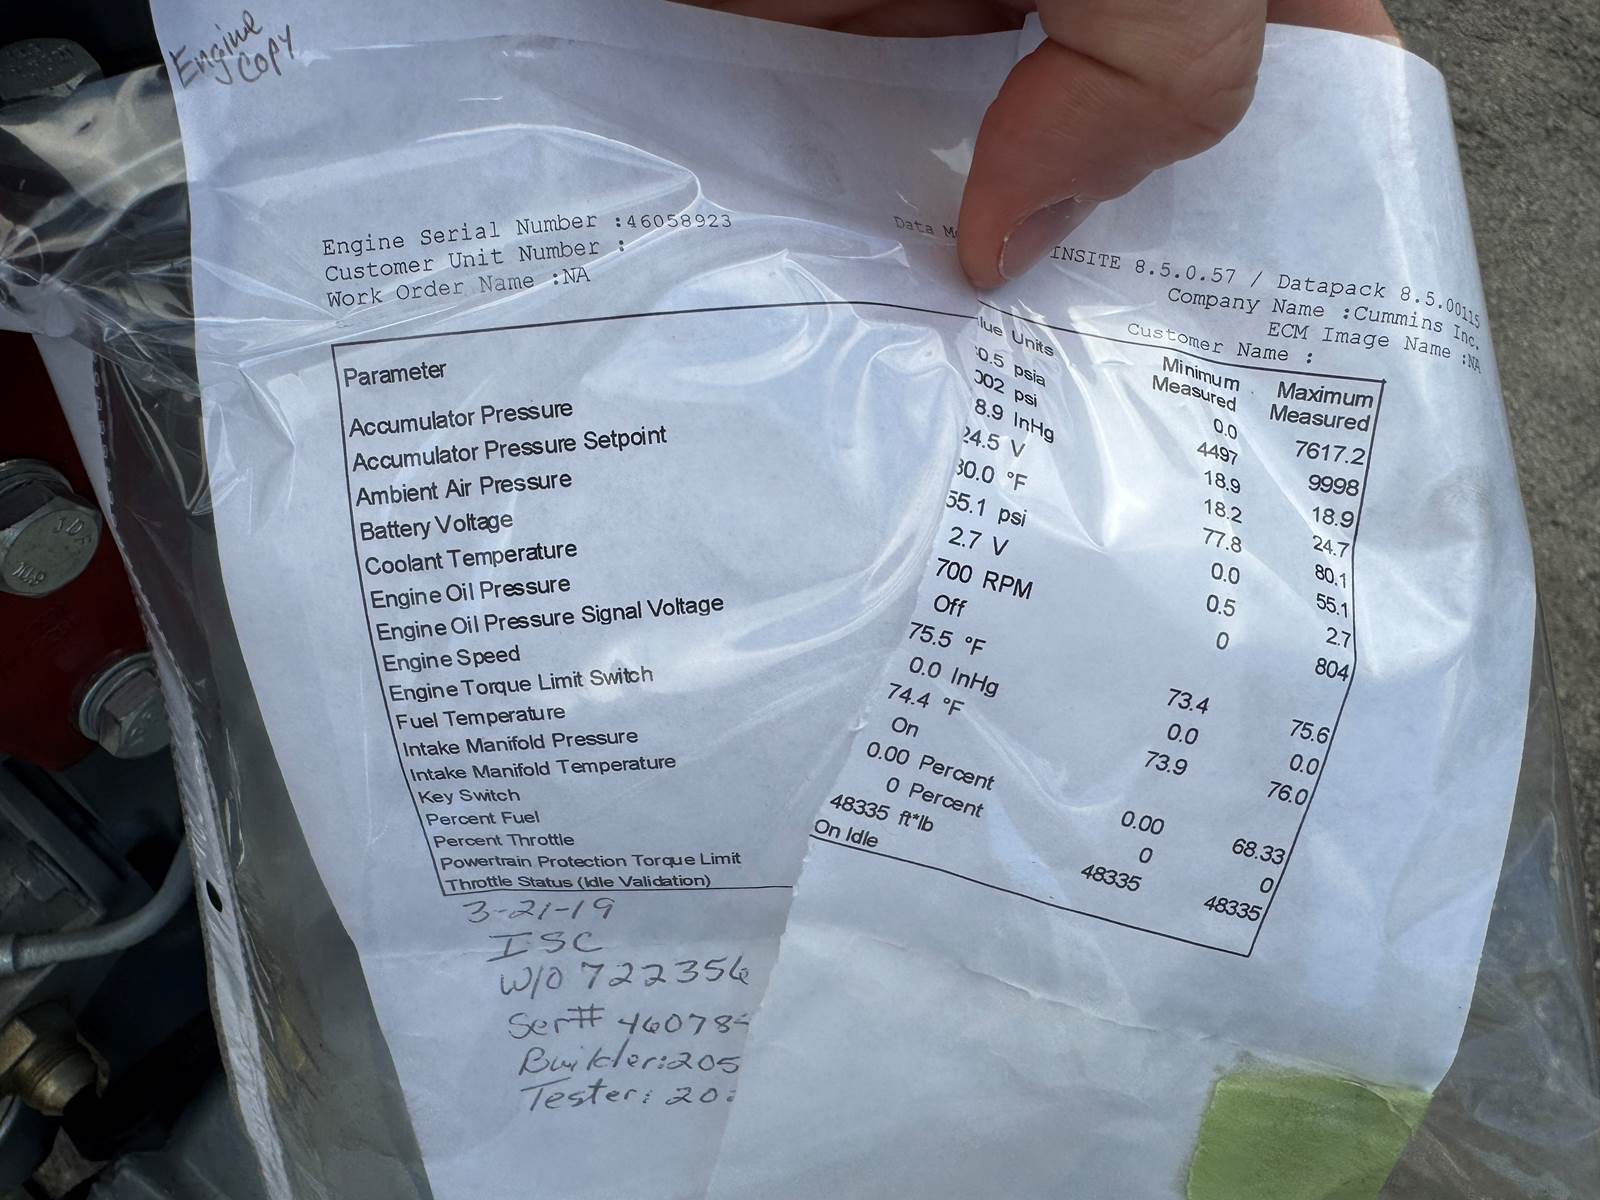 Engine
Copy
Engine Serial Number :46058923
Customer Unit Number :
Work Order Name :NA
Data
INSITE 8.5.0.57 / Datapack 8.5.00115
Company Name :Cummins Inc.
ECM Image Name :NA
Customer Name :
Parameter lue Units Minimum Measured Maximum Measured
Accumulator Pressure 0.5 psia 0.0 7617.2
Accumulator Pressure Setpoint 002 psi 4497 9998
Ambient Air Pressure 8.9 InHg 18.9 18.9
Battery Voltage 24.5 V 18.2 24.7
Coolant Temperature 80.0 °F 77.8 80.1
Engine Oil Pressure 55.1 psi 0.0 55.1
Engine Oil Pressure Signal Voltage 2.7 V 0.5 2.7
Engine Speed 700 RPM 0 804
Engine Torque Limit Switch Off
Fuel Temperature 75.5 °F 73.4 75.6
Intake Manifold Pressure 0.0 InHg 0.0 0.0
Intake Manifold Temperature 74.4 °F 73.9 76.0
Key Switch On
Percent Fuel 0.00 Percent 0.00 68.33
Percent Throttle 0 Percent 0 0
Powertrain Protection Torque Limit 48335 ft*lb 48335 48335
Throttle Status (Idle Validation) On Idle
3-21-19
ISC
W/O 722356
Ser# 46078
Builder:205
Tester: 20